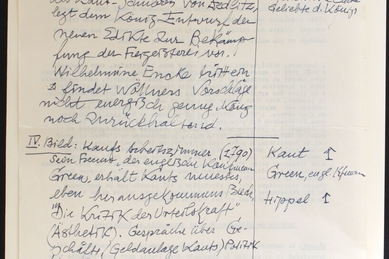 des Kant-Schülers von Zedlitz,
legt dem König Entwurf der
neuen Edikte zur Bekämp-
fung der Freigeisterei vor.
Wilhelmine Enke
findet Wöllners Vorschläge
nicht energisch genug, König
noch zurückhaltend.
Geliebte d. Königs
IV. Bild: Kants Arbeitszimmer (1790)
sein Freund, der englische Kaufmann
Green, erhält Kants neuestes,
eben herausgekommenes Buch
"Die Kritik der Urteilskraft"
(Ästhetik). Gespräche über Ge-
schäfte, (Geldanlage Kants) Politik
Kant ↑
Green, engl. Kfmann
Hippel ↑